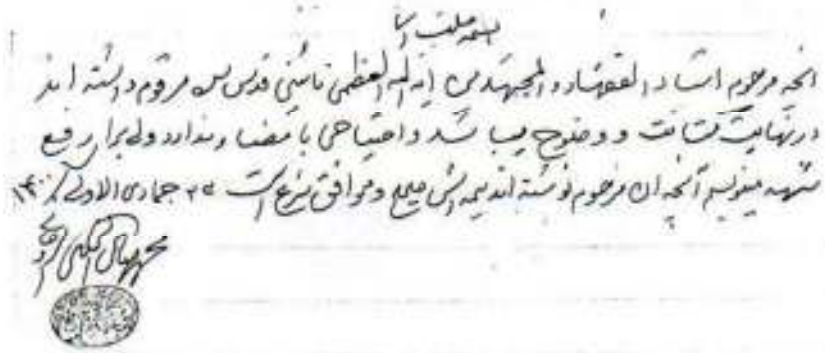 بسمه جلت اسمائه
آنچه مرحوم استاد الفقهاء و المجتهدین آیة الله العظمی نائینی قدس سره مرقوم داشته اند
در نهایت متانت و وضوح میباشد و احتیاجی بامضاء ندارد ولی برای رفع
شبهه مینویسم آنچه آن مرحوم نوشته اند همه اش صحیح و موافق شرع است جمادی الاولی